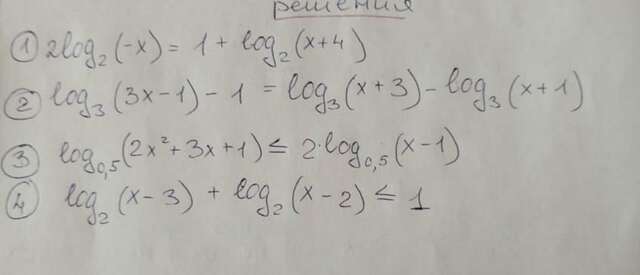 решения
① 2log₂(-x) = 1 + log₂(x+4)
② log₃(3x-1) - 1 = log₃(x+3) - log₃(x+1)
③ log₀,₅(2x²+3x+1) ≤ 2·log₀,₅(x-1)
④ log₂(x-3) + log₂(x-2) ≤ 1